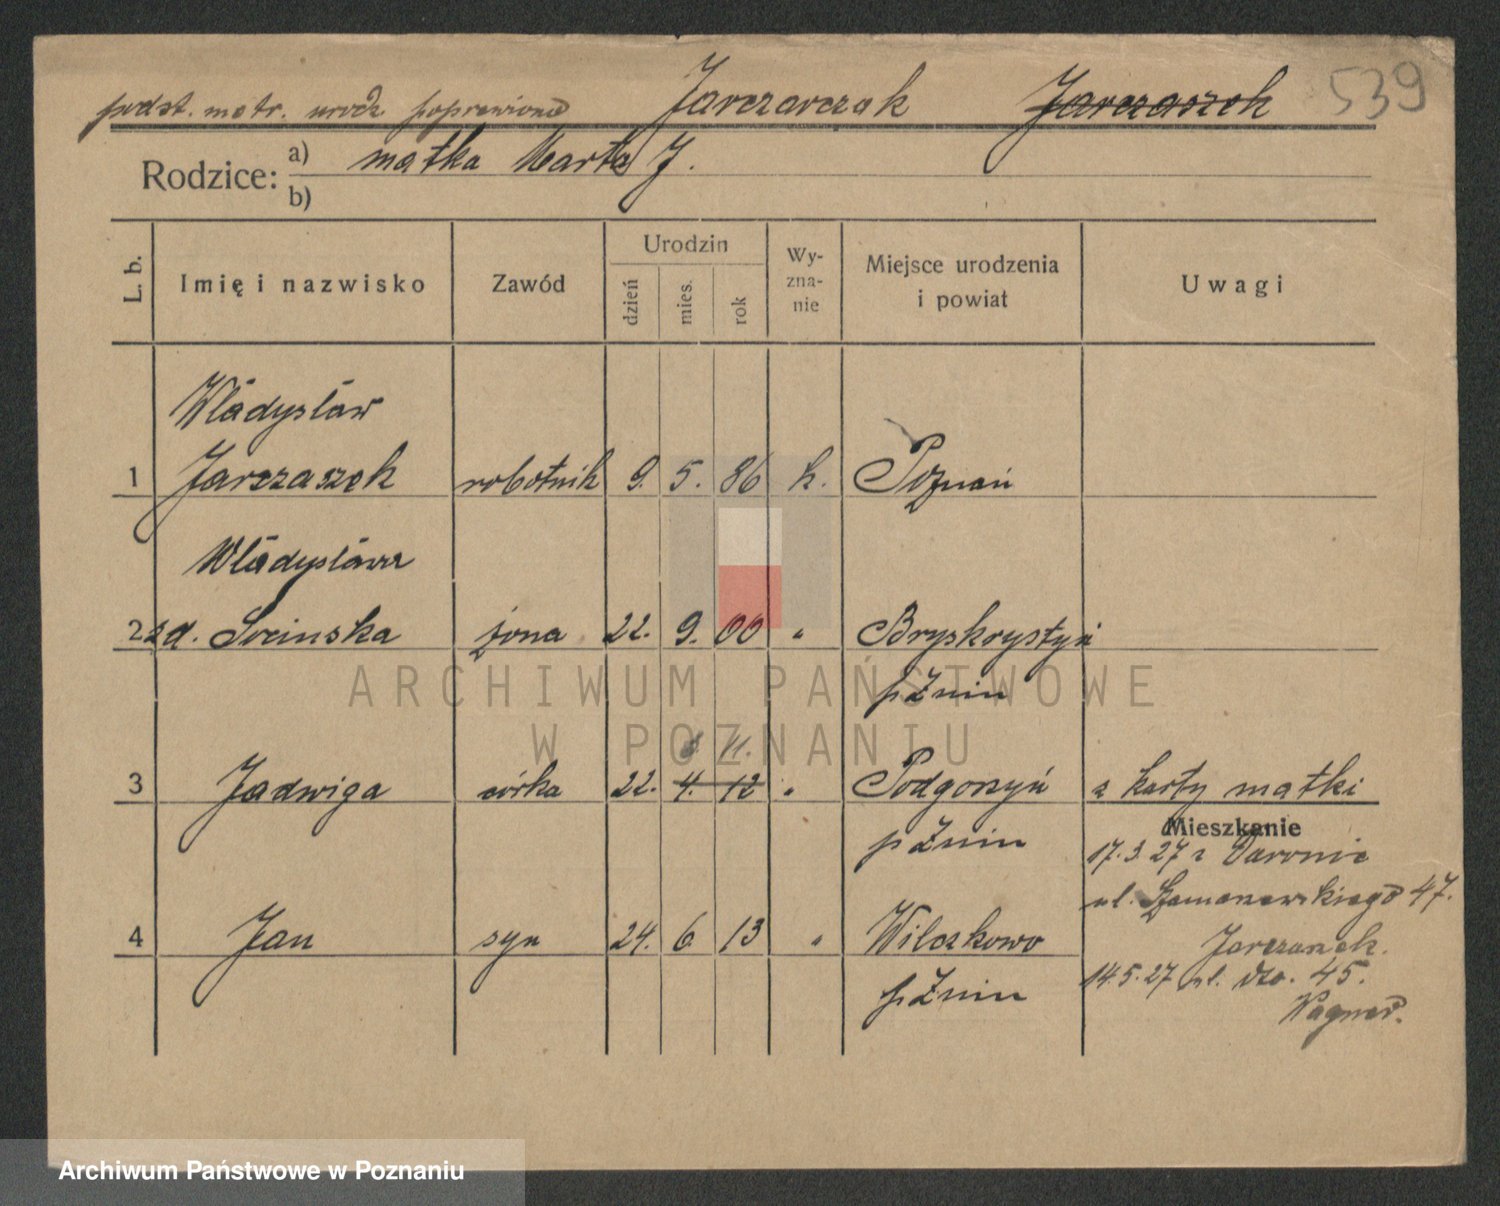 podst. metr. urodz. poprawiono Jarczarczak Jarczaszek 539
Rodzice: a) matka Marta J.
b)
L. b. Imię i nazwisko Zawód Urodzin dzień mies. rok Wy-zna-nie Miejsce urodzenia i powiat Uwagi
Władysław
1 Jarczaszek robotnik 9. 5. 86 k. Poznań
Władysława
2 zd. Socinska żona 22. 9. 00 " Bryskrystyń
p Żnin
11.
3 Jadwiga córka 22. 4. 12 " Podgorzyń z karty matki
p Żnin Mieszkanie
17.3.27 z
ul. 47.
4 Jan syn 24. 6. 13 " Wilczkowo
Jarczanek.
p Żnin 14.5.27 ul. dto. 45.
Wagner.
ARCHIWUM PAŃSTWOWE
W POZNANIU
Archiwum Państwowe w Poznaniu